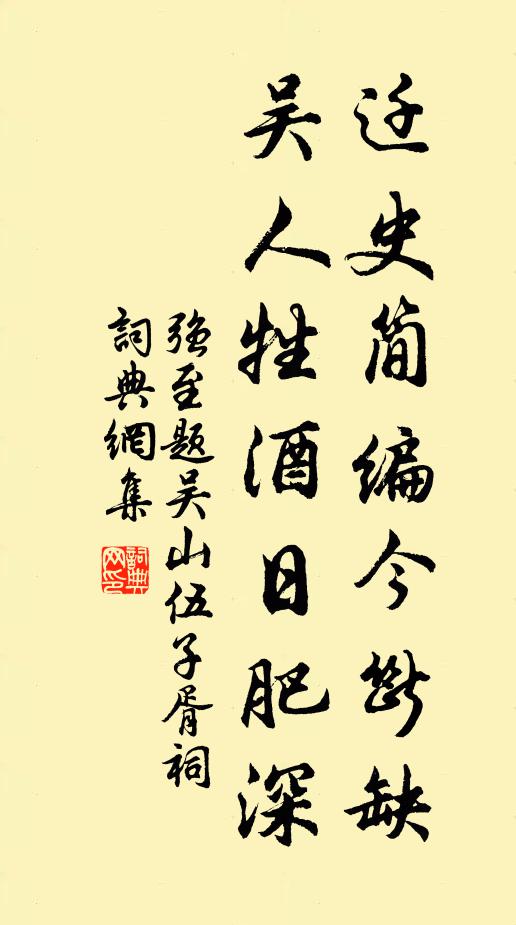 迁史简编今断缺
吴人牲酒日肥深
强至题吴山伍子胥祠
詞典網集
詞典网印